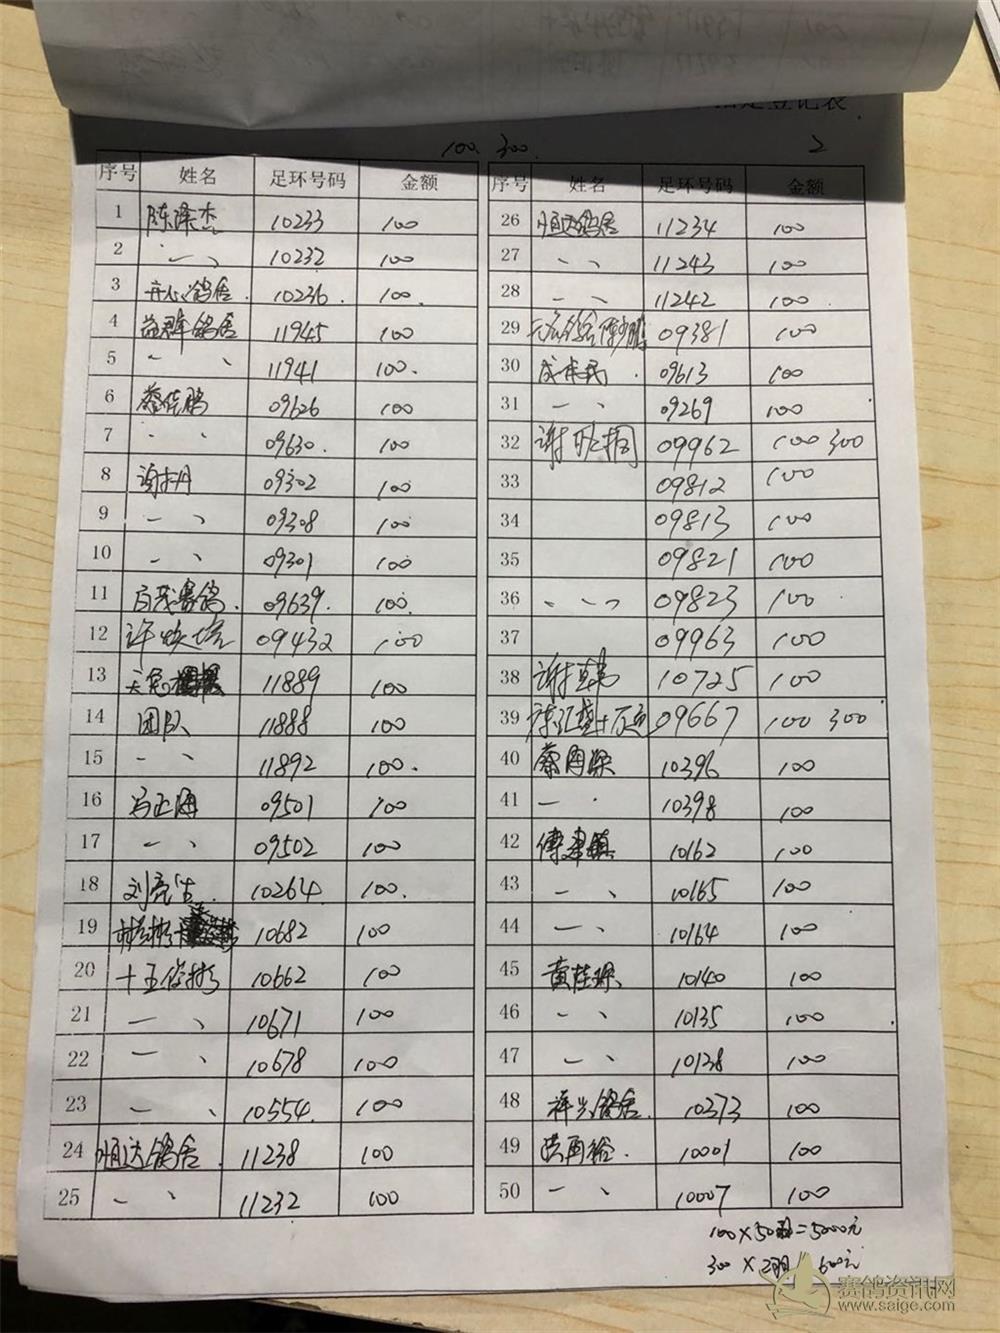 指定登记表
100. 300. 2
序号 姓名 足环号码 金额
1 陈泽杰 10233 100
2 一 、 10232 100
3 开心鸽舍 10236. 100.
4 益群鸽舍 11945 100
5 一 、 11941 100.
6 蔡佳鹏 09626 100
7 、 、 09630. 100
8 谢丹 09302 100
9 一 、 09308 100
10 一 、 09301 100
11 百茂赛鸽. 09639. 100.
12 许 09432 100
13 11889 100
14 团队 11888 100
15 一 、 11892 100.
16 冯正海 09501 100
17 一 、 09502 100
18 刘亮 10264. 100.
19 彬彬 10682 100
20 十五 10662 100
21 一 、 10671 100
22 一 、 10678 100
23 一 、 10554. 100
24 恒达鸽舍. 11238 100
25 一 、 11232 100
序号 姓名 足环号码 金额
26 恒达鸽舍 11234 100
27 、 、 11243 100
28 一 、 11242 100.
29 09381 100
30 成 . 09613 100
31 一 、 09269 100
32 谢旺桐 09962 100 300
33 09812 100
34 09813 100
35 09821 100
36 、 一 、 09823 100
37 09963 100
38 谢 10725 100
39 陈汇盛+ 09667 100 300
40 蔡 10396 100
41 一 、 10398 100
42 傅建镇 10162 100
43 一 、 10165 100
44 一 、 10164 100
45 黄桂 10140 100
46 、 、 10135 100
47 一 、 10138 100
48 祥兴鸽舍. 10373 100
49 洪再裕. 10001 100
50 一 、 10007 100
100×50羽=5000元
300×2羽 600元
赛鸽资讯网
www.saige.com